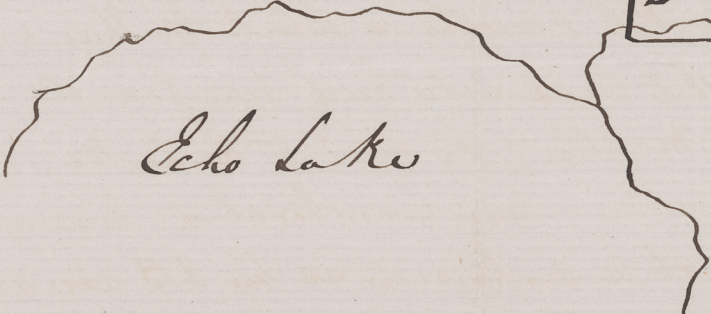 Echo Lake